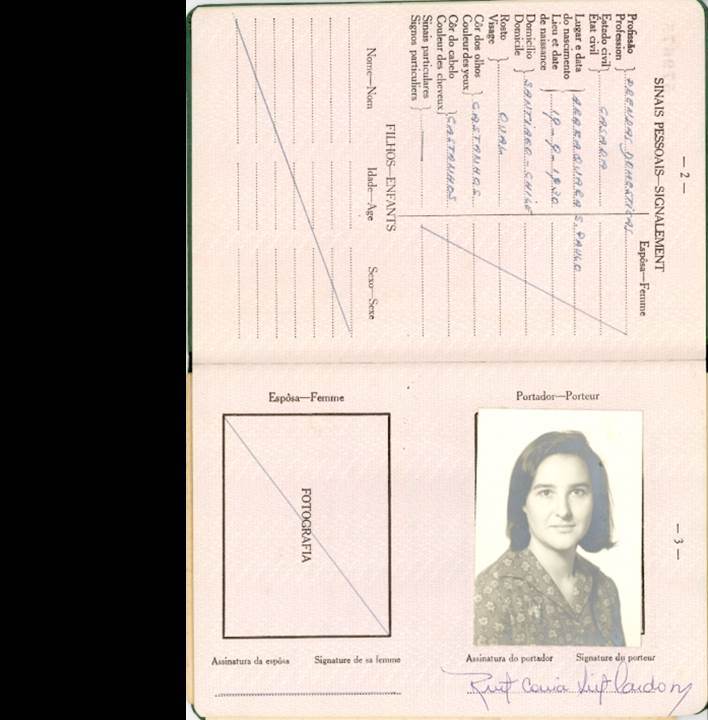 — 2 —
SINAIS PESSOAIS—SIGNALEMENT
Espôsa—Femme
Profissão
Profession } PRENDAS DOMESTICAS
Estado civil
État civil } CASADA
Lugar e data
do nascimento ARARAQUARA S. PAULO
Lieu et date
de naissance } 19-9-1930
Domicílio
Domicile } SANTIAGO-CHILE
Rosto
Visage } OVAL
Côr dos olhos
Couleur des yeux } CASTANHOS
Côr do cabelo
Couleur des cheveux } CASTANHOS
Sinais particulares
Signos particuliers }
FILHOS—ENFANTS
Nome—Nom Idade—Age Sexo—Sexe
— 3 —
Espôsa—Femme
Portador—Porteur
FOTOGRAFIA
Assinatura da espôsa Signature de sa femme
Assinatura do portador Signature du porteur